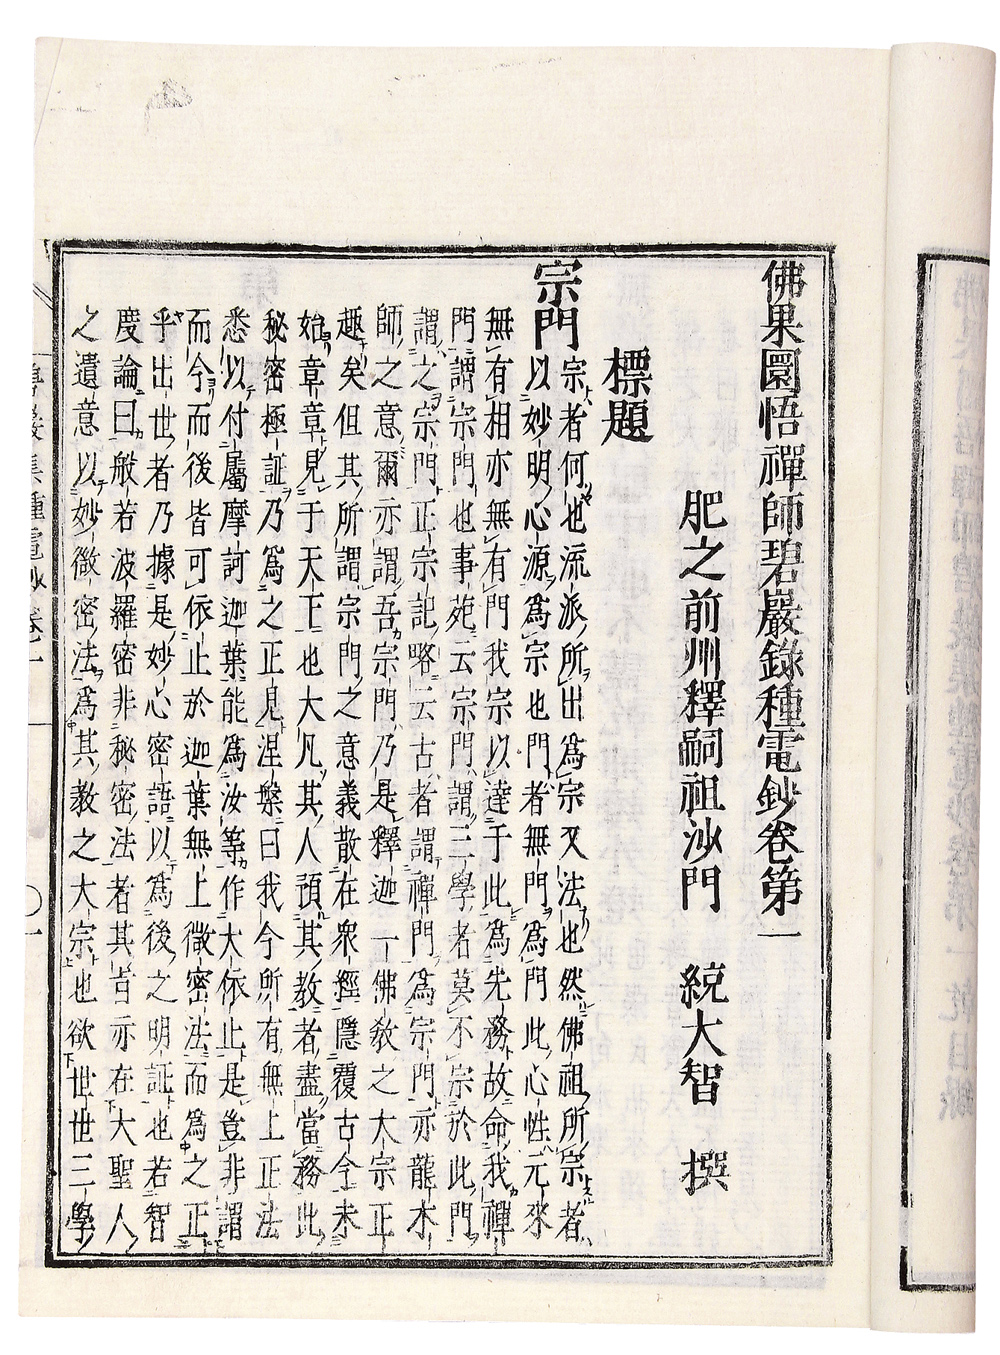 佛果圜悟禪師碧巖錄種電鈔卷第一
肥之前州釋嗣祖沙門　統大智　撰
標題
宗門
宗者何也流派所出為宗又法也然佛祖所宗者
以妙明心源為宗也門者無門為門此心性元來
無有相亦無有門我宗以達于此為先務故命我禪
門謂宗門也事苑云宗門謂三學者莫不宗於此門
謂之宗門正宗記略云古者謂禪門為宗門亦龍木
師之意爾亦謂吾宗門乃是釋迦一佛教之大宗正
趣矣但其所謂宗門之意義散在眾經隱覆古今未
始章章見于天下也大凡其人預其教者盡當務此
秘密極証乃為之正見涅槃曰我今所有無上正法
悉以付屬摩訶迦葉能為汝等作大依止是豈非謂
而今而後皆可依止於迦葉無上微密法而為之正
乎出世者乃據是妙心密語以為後之明証也若智
度論曰般若波羅密非秘密法者其旨亦在大聖人
之遺意以妙微密法為其教之大宗也欲世世三學